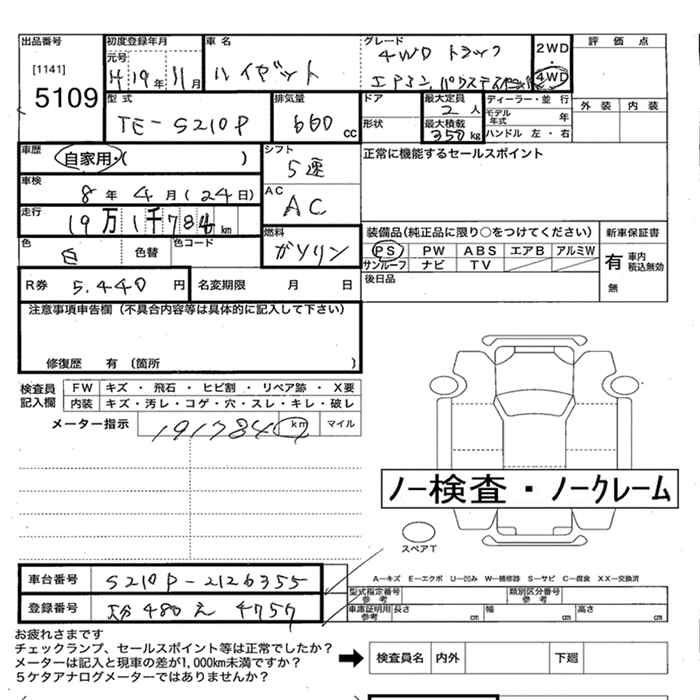 出品番号 [1141] 5109
初度登録年月 元号 H19年 11月
車名 ハイゼット
グレード 4WD トラック
エアコン パワステ
2WD ・ 4WD
評価点
外装 内装
型式 TE-S210P
排気量 660 cc
ドア 形状
最大定員 2 人
最大積載 350 kg
ディーラー・並行
モデル年式 年
ハンドル 左・右
車歴 自家用・( )
シフト 5速
正常に機能するセールスポイント
車検 8年 4月 (24日)
AC AC
走行 19万1千784 km
燃料 ガソリン
色 白 色替 色コード
装備品(純正品に限り○をつけてください)
PS PW ABS エアB アルミW
サンルーフ ナビ TV
新車保証書
有 車内 積込無効
無
R券 5,440 円
名変期限 月 日
後日品
注意事項申告欄(不具合内容等は具体的に記入して下さい)
修復歴 有 (箇所 )
検査員記入欄
FW キズ ・ 飛石 ・ ヒビ割 ・ リペア跡 ・ X要
内装 キズ・汚レ・コゲ・穴・スレ・キレ・破レ
メーター指示 191784 km マイル
ノー検査・ノークレーム
スペアT
車台番号 S210P-2126355
登録番号 480 え 4757
A-キズ E-エクボ U-凹み W-補修跡 S-サビ C-腐食 XX-交換済
型式指定番号 参考 類別区分番号 参考
車庫証明用 参考 長さ cm 幅 cm 高さ cm
お疲れさまです
チェックランプ、セールスポイント等は正常でしたか?
メーターは記入と現車の差が1,000km未満ですか?
5ケタアナログメーターではありませんか?
検査員名 内外 下廻